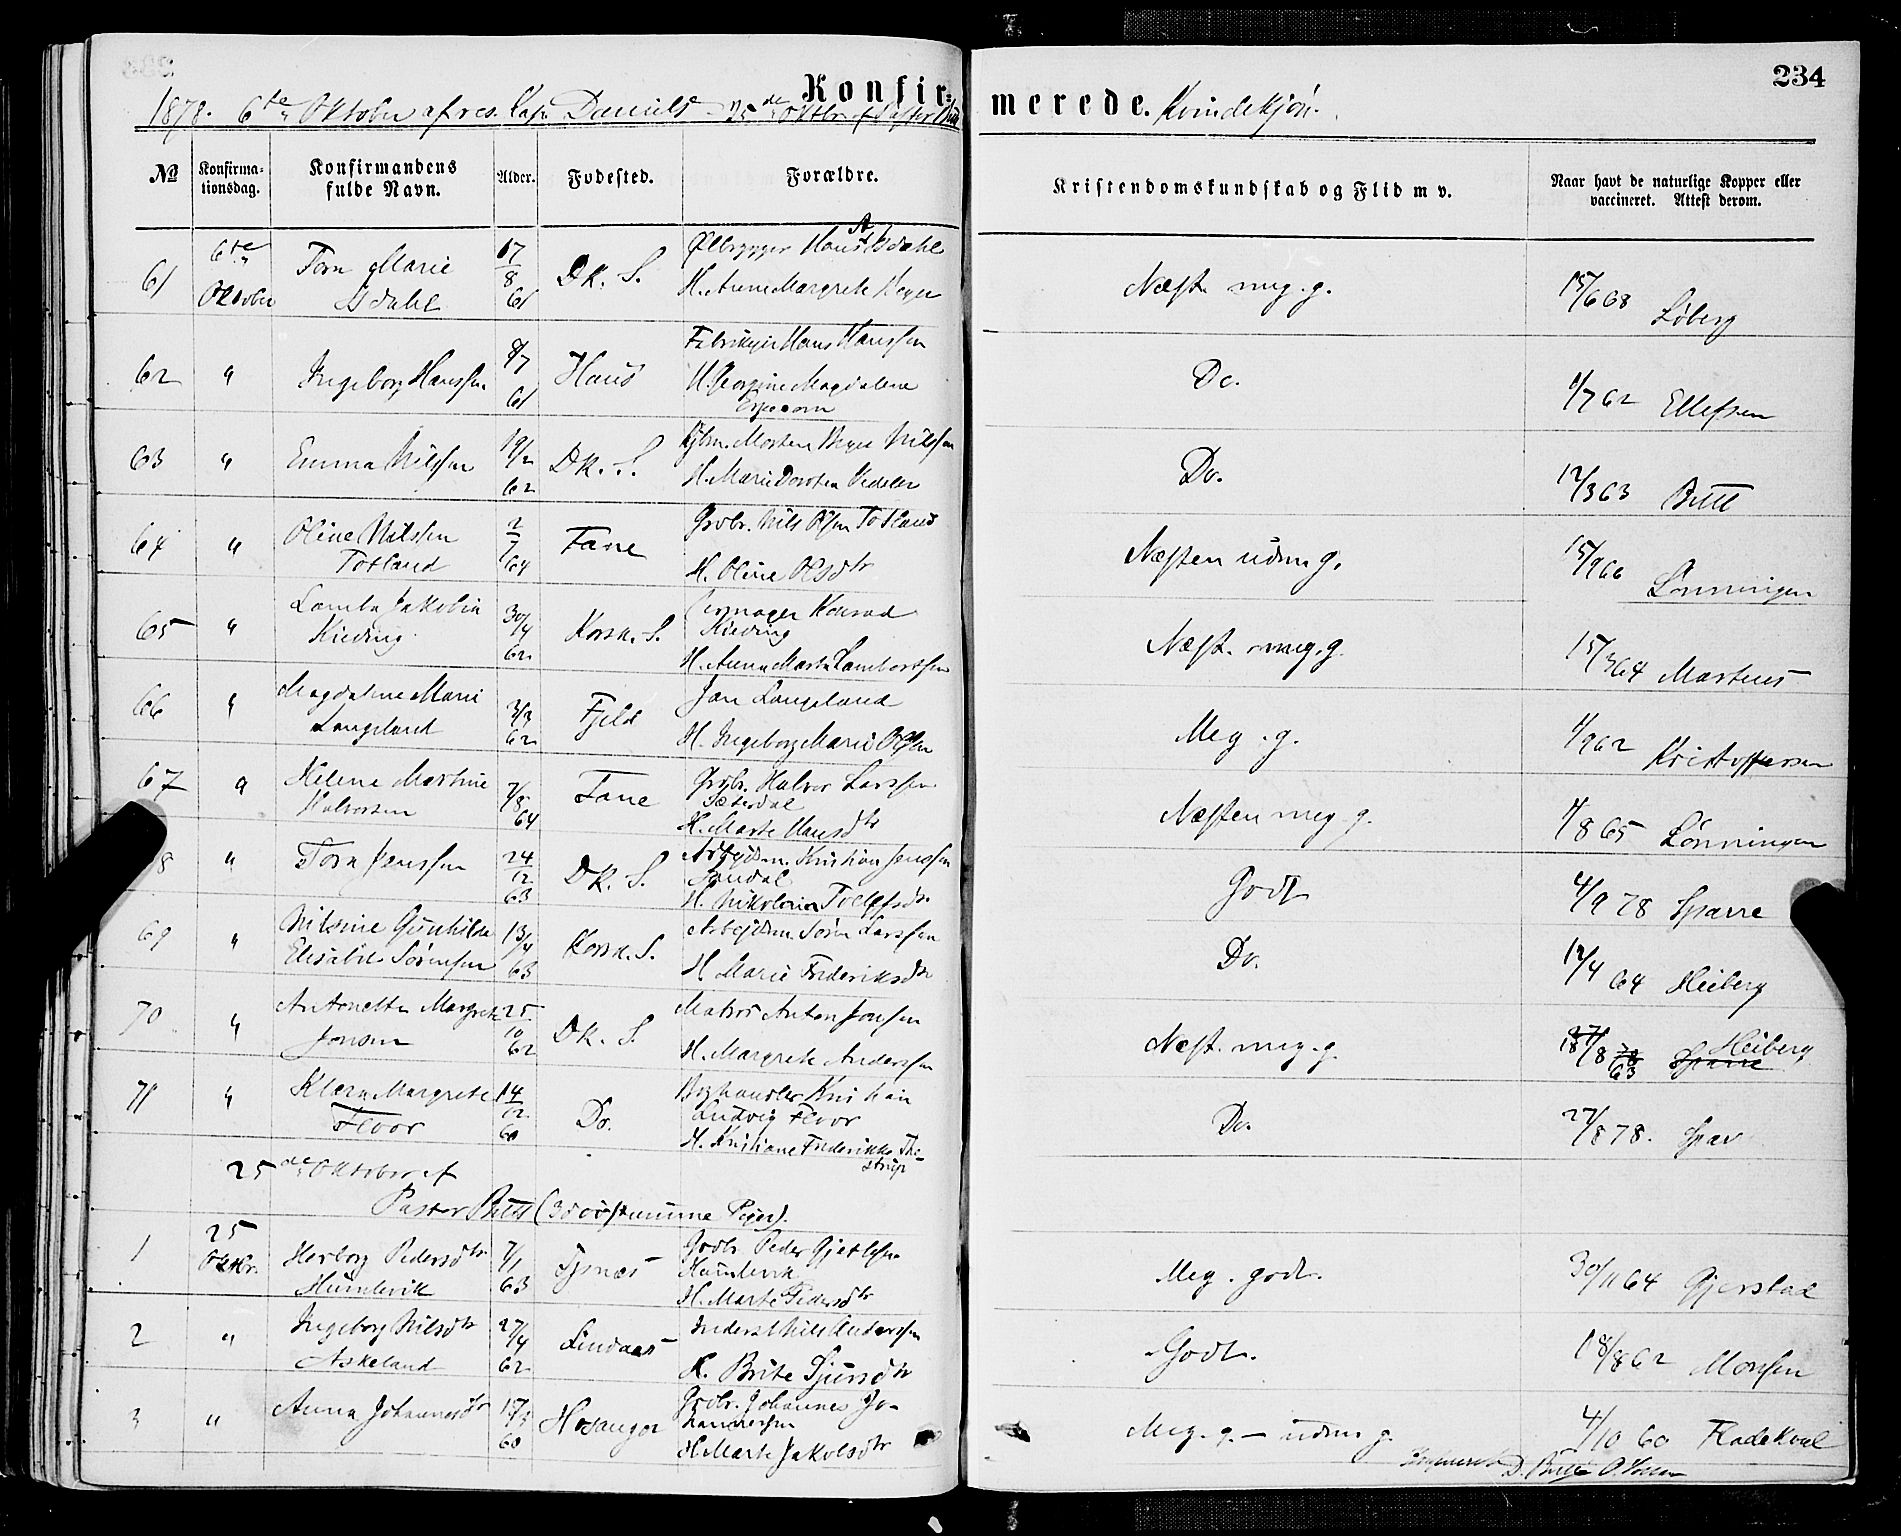 234
Konfir= merede. Kvindekjøn.
1878. 6te Oktober af res. Cap. Daniels 25de Oktbr. af Pastor
№ Konfirma-tionsdag. Konfirmandens fulde Navn. Alder. Fødested. Forældre. Kristendomskundskab og Flid m v. Naar havt de naturlige Kopper eller vaccineret. Attest derom.
61 6te Oktober Tora Marie Isdahl 17/8 61 DK. S. Ølbrygger Hans A Isdahl H. Anne Margrete Meyer Næst. meg. g. 15/6 68 Løberg
62 " Ingeborg Hanssen 8/7 61 Haus Hans Hanssen H. Georgine Magdalene Do. 1/7 62 Ellefsen
63 " Emma Nilssen 19/2 62 DK. S. Morten Meyer Nilssen H. Marie Dorotea Vedeler Do. 12/3 63 Butt
64 " Oline Nilssen Totland 2/7 64 Fane Grdbr. Nils Olsen Totland H. Oline Olsdtr Næsten udm. g. 15/9 66 Lønningen
65 " Lamba Jakobia Kieding 30/4 62 Korsk. S. Konrad Kieding H. Anna Marta Lambertsen Næst. meg. g. 15/3 64 Martens
66 " Magdalene Marie Langeland 3/3 62 Fjeld Jan Langeland H. Ingeborg Marie Olsen Meg. g. 1/9 62 Kristoffersen
67 " Helene Martine Halvorsen 7/8 64 Fane Grdbr. Halvor Larssen Sæterdal H. Marte Hansdtr Næsten meg. g. 1/8 65 Lønningen
8 " Tora Jenssen 24/12 63 DK. S. Arbejdsm. Kristian Jenssen H. Nikolina Godt 4/9 78 Sparre
69 " Nilsine Gunhilda Elisabet Sørensen 13/4 63 Korsk. S. Arbejdsm. Søren Larssen H Marie Frederiksdtr Do. 12/4 64 Heiberg
70 " Antonette Margrete Jonsen 25/10 62 DK. S. Matros Anton Jonsen H. Margrete Anderssen Næst. meg. g. 18/8 63 Sparre Heiberg
71 " Klara Margrete Floor 14/12 60 Do. Boghandler Kristian Ludvig Floor H. Kristiane Frederikke The-strup Do. 27/8 78. Spar
25de Oktober af
Pastor Butt (3 døvstumme Piger).
1 25 Oktbr. Herborg Pedersdtr Humlevik 7/1 63 Tysnæs Grdbr. Peder Gjertsen Humlevik H. Marte Pedersdtr Meg. godt. 30/11 64 Gjerstad
2 " Ingeborg Nilsdtr Askeland 27/4 62 Lindaas Inderst Nils Anderssen H. Brite Sjursdtr Godt. 18/8 62 Monsen
3 " Anna Johannesdtr 17/3 60 Hosanger Grdbr. Johannes Jo-hannessen H. Marte Jakobsdtr Meg. g. – udm. g. 4/10 60 Fladekval
D. Butt